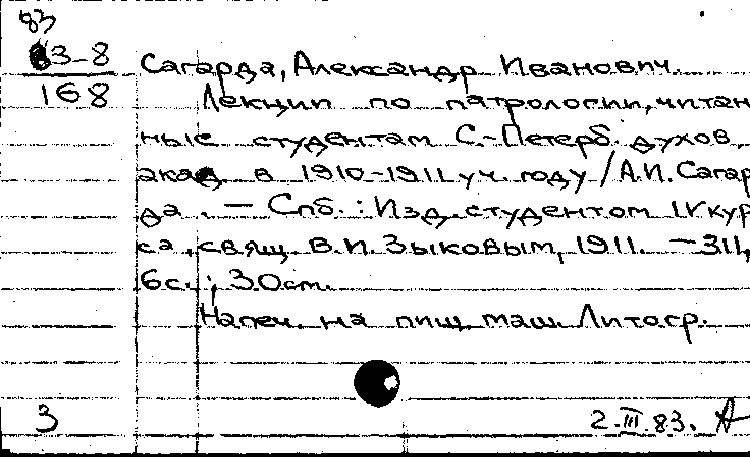 83
83-8
168
Сагарда, Александр Иванович.
Лекции по патрологии, читан
ные студентам С.-Петерб. духов
акад. в 1910-1911 уч. году / А.И. Сагар
да. — Спб. : Изд. студентом IV кур
са, свящ. В.И. Зыковым, 1911. — 311,
6с. ; 30см.
Напеч. на пиш. маш. Литогр.
3
2.III.83.